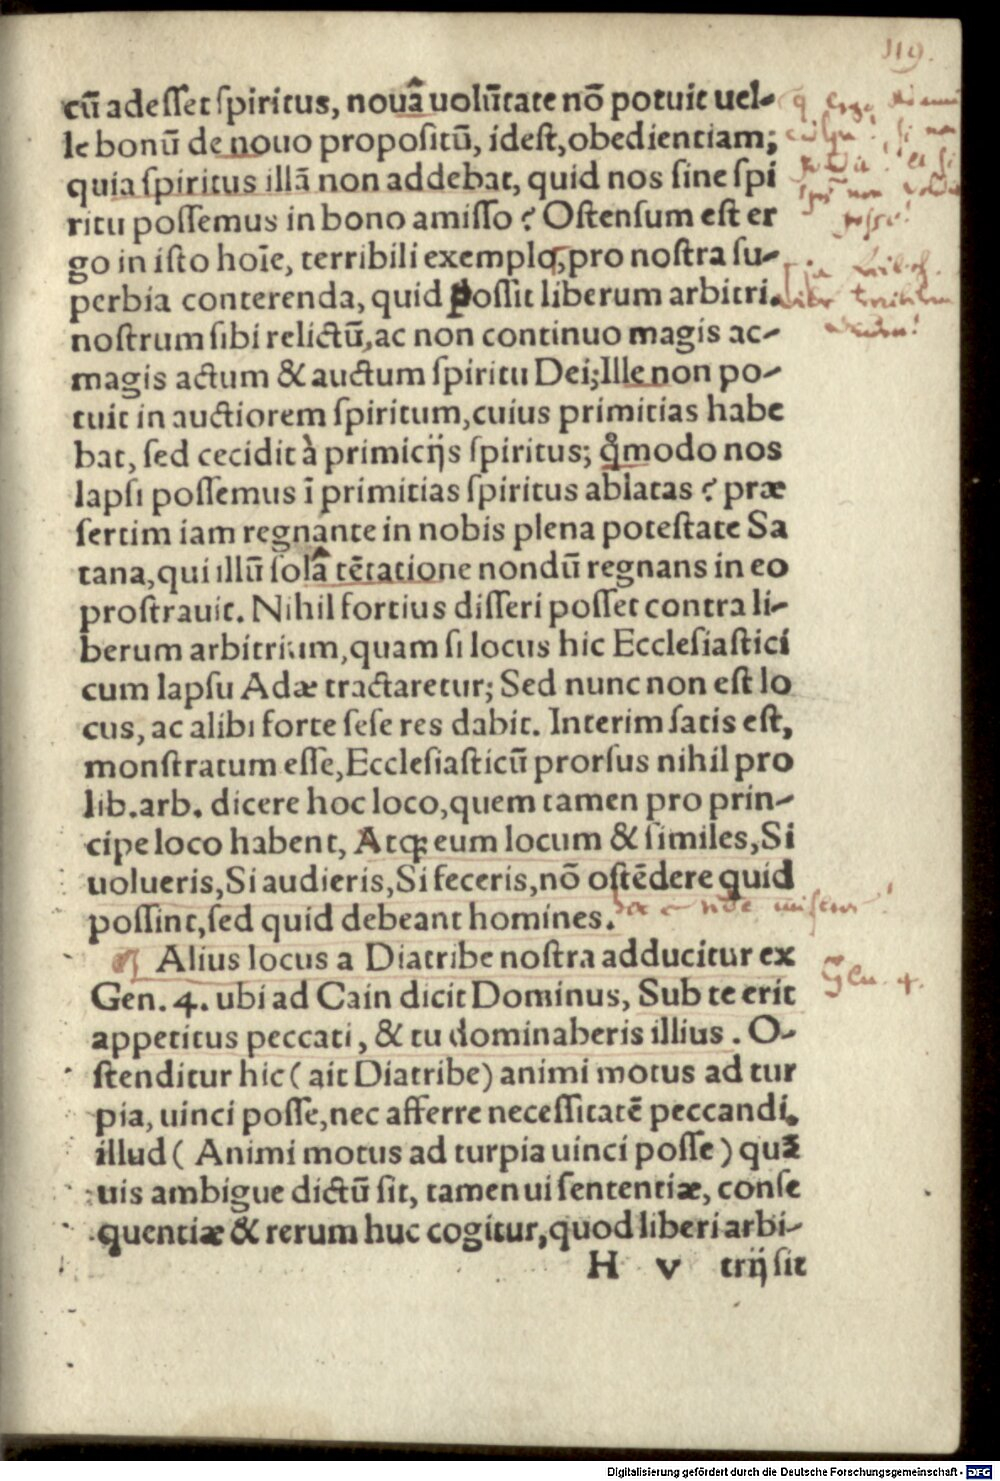 119.
cū adesset spiritus, nouâ uolūtate nō potuit uel-
le bonū de nouo propositū, idest, obedientiam;
quia spiritus illā non addebat, quid nos sine spi
ritu possemus in bono amisso? Ostensum est er
go in isto hoīe, terribili exemplo, pro nostra su-
perbia conterenda, quid possit liberum arbitri.
nostrum sibi relictū, ac non continuo magis ac-
magis actum & auctum spiritu Dei; Ille non po-
tuit in auctiorem spiritum, cuius primitias habe
bat, sed cecidit à primicijs spiritus; qͦmodo nos
lapsi possemus ī primitias spiritus ablatas? præ
sertim iam regnante in nobis plena potestate Sa
tana, qui illū solâ tētatione nondū regnans in eo
prostrauit. Nihil fortius disseri posset contra li-
berum arbitrium, quam si locus hic Ecclesiastici
cum lapsu Adæ tractaretur; Sed nunc non est lo
cus, ac alibi forte sese res dabit. Interim satis est,
monstratum esse, Ecclesiasticū prorsus nihil pro
lib. arb. dicere hoc loco, quem tamen pro prin-
cipe loco habent, Atqꝫ eum locum & similes, Si
uolueris, Si audieris, Si feceris, nō ostēdere quid
possint, sed quid debeant homines.
Alius locus a Diatribe nostra adducitur ex
Gen. 4.
Gen. 4. ubi ad Cain dicit Dominus, Sub te erit
appetitus peccati, & tu dominaberis illius. O-
stenditur hic (ait Diatribe) animi motus ad tur
pia, uinci posse, nec afferre necessitatē peccandi.
illud (Animi motus ad turpia uinci posse) quā
uis ambigue dictū sit, tamen ui sententiæ, conse
quentiæ & rerum huc cogitur, quod liberi arbi-
H v trij sit
Digitalisierung gefördert durch die Deutsche Forschungsgemeinschaft - DFG